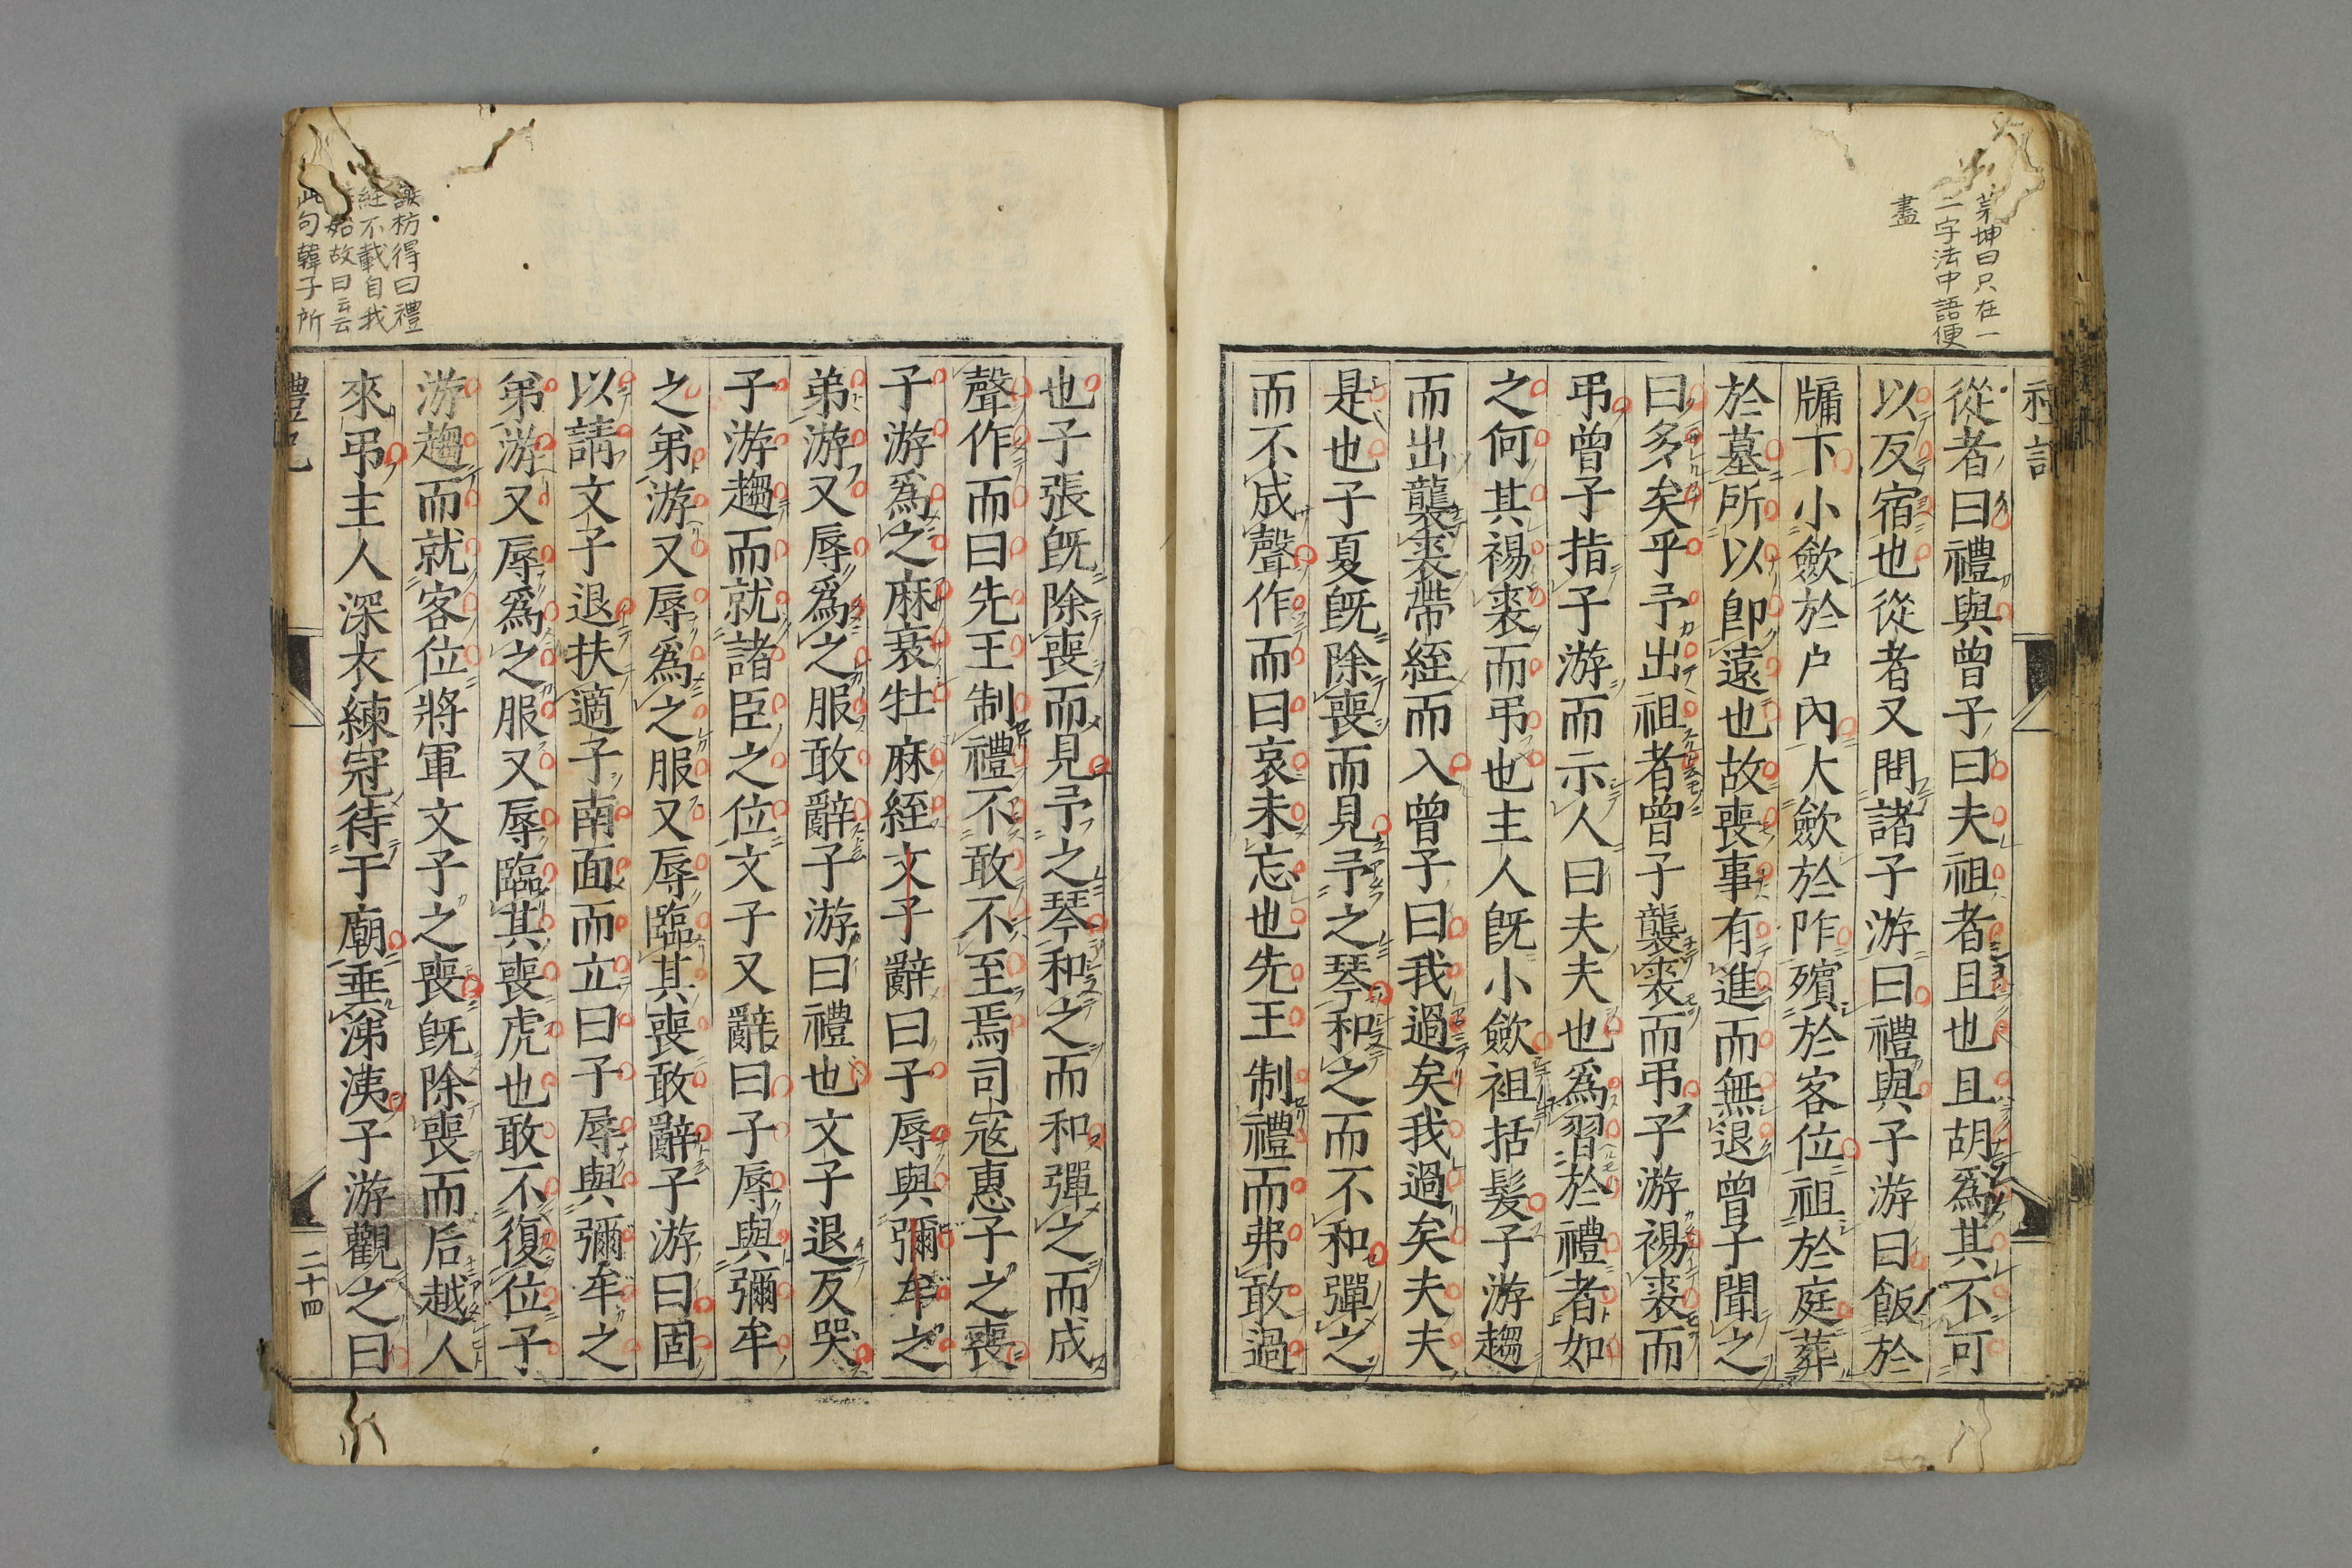 茅坤曰只在一
二字法中語便
盡
從者曰禮與曾子曰夫祖者且也且胡爲其不可
以反宿也從者又問諸子游曰禮與子游曰飯於
牖下小斂於户內大斂於阼殯於客位祖於庭葬
於墓所以卽遠也故喪事有進而無退曾子聞之
曰多矣乎予出祖者曾子襲裘而弔子游裼裘而
弔曾子指子游而示人曰夫夫也爲習於禮者如
之何其裼裘而弔也主人旣小斂袒括髮子游趨
而出襲裘帶絰而入曾子曰我過矣我過矣夫夫
是也子夏旣除喪而見予之琴和之而不和彈之
而不成聲作而曰哀未忘也先王制禮而弗敢過
也子張旣除喪而見予之琴和之而和彈之而成
聲作而曰先王制禮不敢不至焉司寇惠子之喪
子游爲之麻衰牡麻絰文子辭曰子辱與彌牟之
弟游又辱爲之服敢辭子游曰禮也文子退反哭
子游趨而就諸臣之位文子又辭曰子辱與彌牟
之弟游又辱爲之服又辱臨其喪敢辭子游曰固
以請文子退扶適子南面而立曰子辱與彌牟之
弟游又辱爲之服又辱臨其喪虎也敢不復位子
游趨而就客位將軍文子之喪旣除喪而后越人
來弔主人深衣練冠待于廟垂涕洟子游觀之曰
謝枋得曰禮
經不載自我
始故曰云云
此句韓子所
禮記
二十四